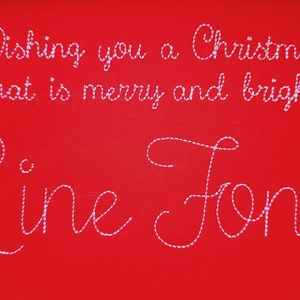 Wishing you a Christm
hat is merry and brigh
Line Fon